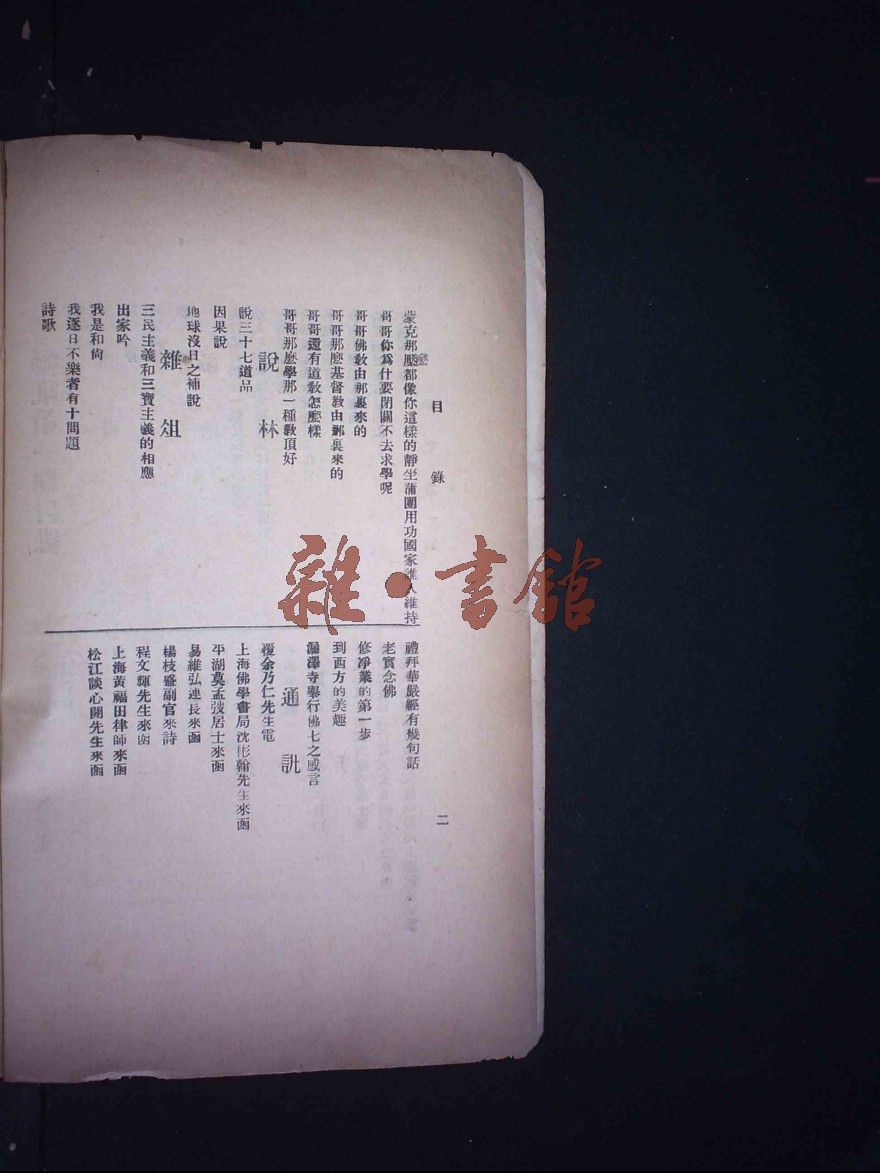 目錄
二
蒙克那麼都像你這樣的靜坐蒲團用功國家誰人維持
哥哥你為什要閉關不去求學呢
哥哥佛教由那裏來的
哥哥那麼基督教由那裏來的
哥哥還有道教怎麼樣
哥哥那麼學那一種教頂好
說林
說三十七道品
因果說
地球沒日之補說
雜俎
三民主義和三寶主義的相應
出家吟
我是和尙
我逐日不樂者有十問題
詩歌
禮拜華嚴經有幾句話
老實念佛
修凈業的第一步
到西方的美趣
漏澤寺舉行佛七之感言
通訊
覆余乃仁先生電
上海佛學書局沈彬翰先生來函
平湖莫孟弢居士來函
易維弘連長來函
楊枝盛副官來詩
程文輝先生來函
上海黃福田律師來函
松江談心開先生來函
雜·書館